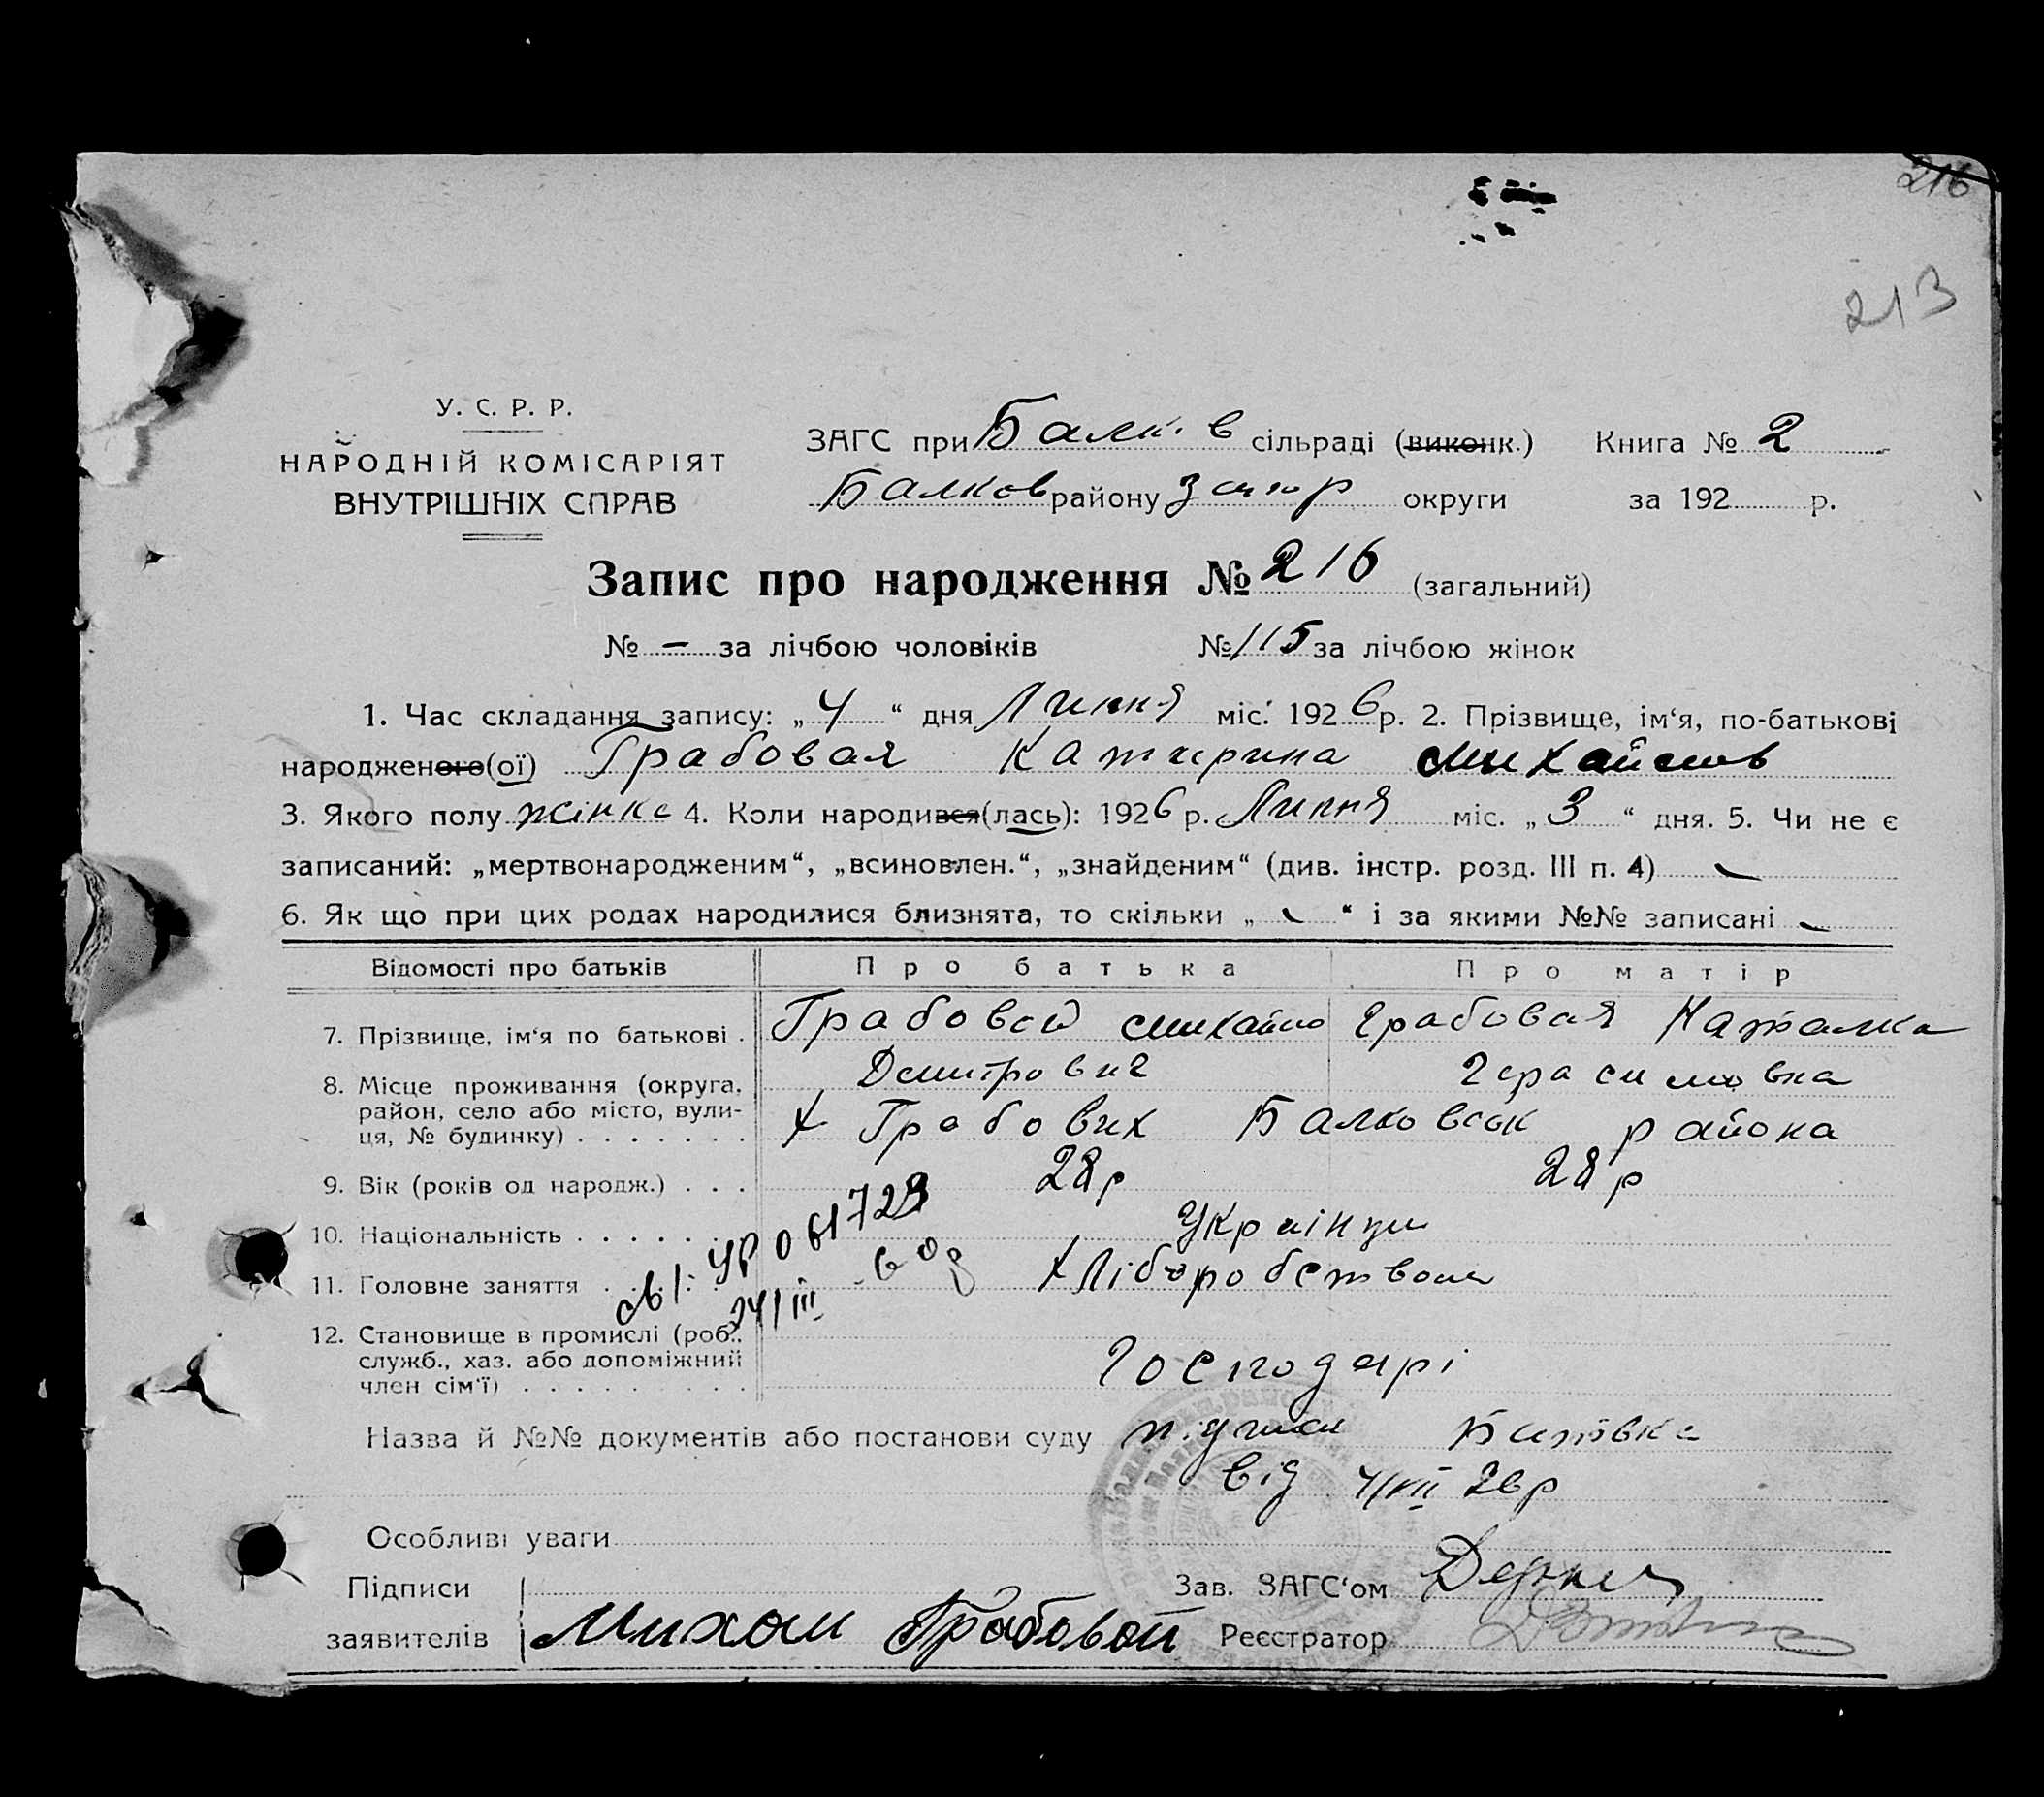 216
213
У. С. Р. Р.
НАРОДНІЙ КОМІСАРІЯТ
ВНУТРІШНІХ СПРАВ
ЗАГС при Балк. в сільраді (виконк.) Книга № 2
Балков району Запор округи за 192 р.
Запис про народження № 216 (загальний)
№ – за лічбою чоловіків № 115 за лічбою жінок
1. Час складання запису: „4“ дня Липня міс. 1926 р. 2. Прізвище, ім‘я, по-батькові
народженого(ої) Грабовая Катирина Михайлов
3. Якого полу жінка 4. Коли народився(лась): 1926 р. Липня міс. „3“ дня. 5. Чи не є
записаний: „мертвонародженим“, „всиновлен.“, „знайденим“ (див. інстр. розд. III п. 4)
6. Як що при цих родах народилися близнята, то скільки „ “ і за якими №№ записані
Відомості про батьків Про батька Про матір
7. Прізвище, ім‘я по батькові . Грабовой Михайло Грабовая Наталка
Дмитрович Герасимовна
8. Місце проживання (округа,
район, село або місто, вули-
ця, № будинку) . . . . . . . х Грабових Балковськ района
9. Вік (років од народж.) . . . 28 р 28 р
10. Національність . . . . . . Українци
11. Головне заняття . . . Хліборобством
св/: УР 061723
24/III
12. Становище в промислі (роб.,
служб., хаз. або допоміжний
член сім‘ї) . . . . . . . . . Господарі
Назва й №№ документів або постанови суду Батька
від 4/VII 26 р
Особливі уваги
Підписи Зав. ЗАГС‘ом
заявителів Михаил Грабовой Реєстратор